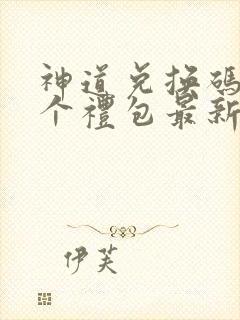 神道兑换码
个禮包最新
伊芙